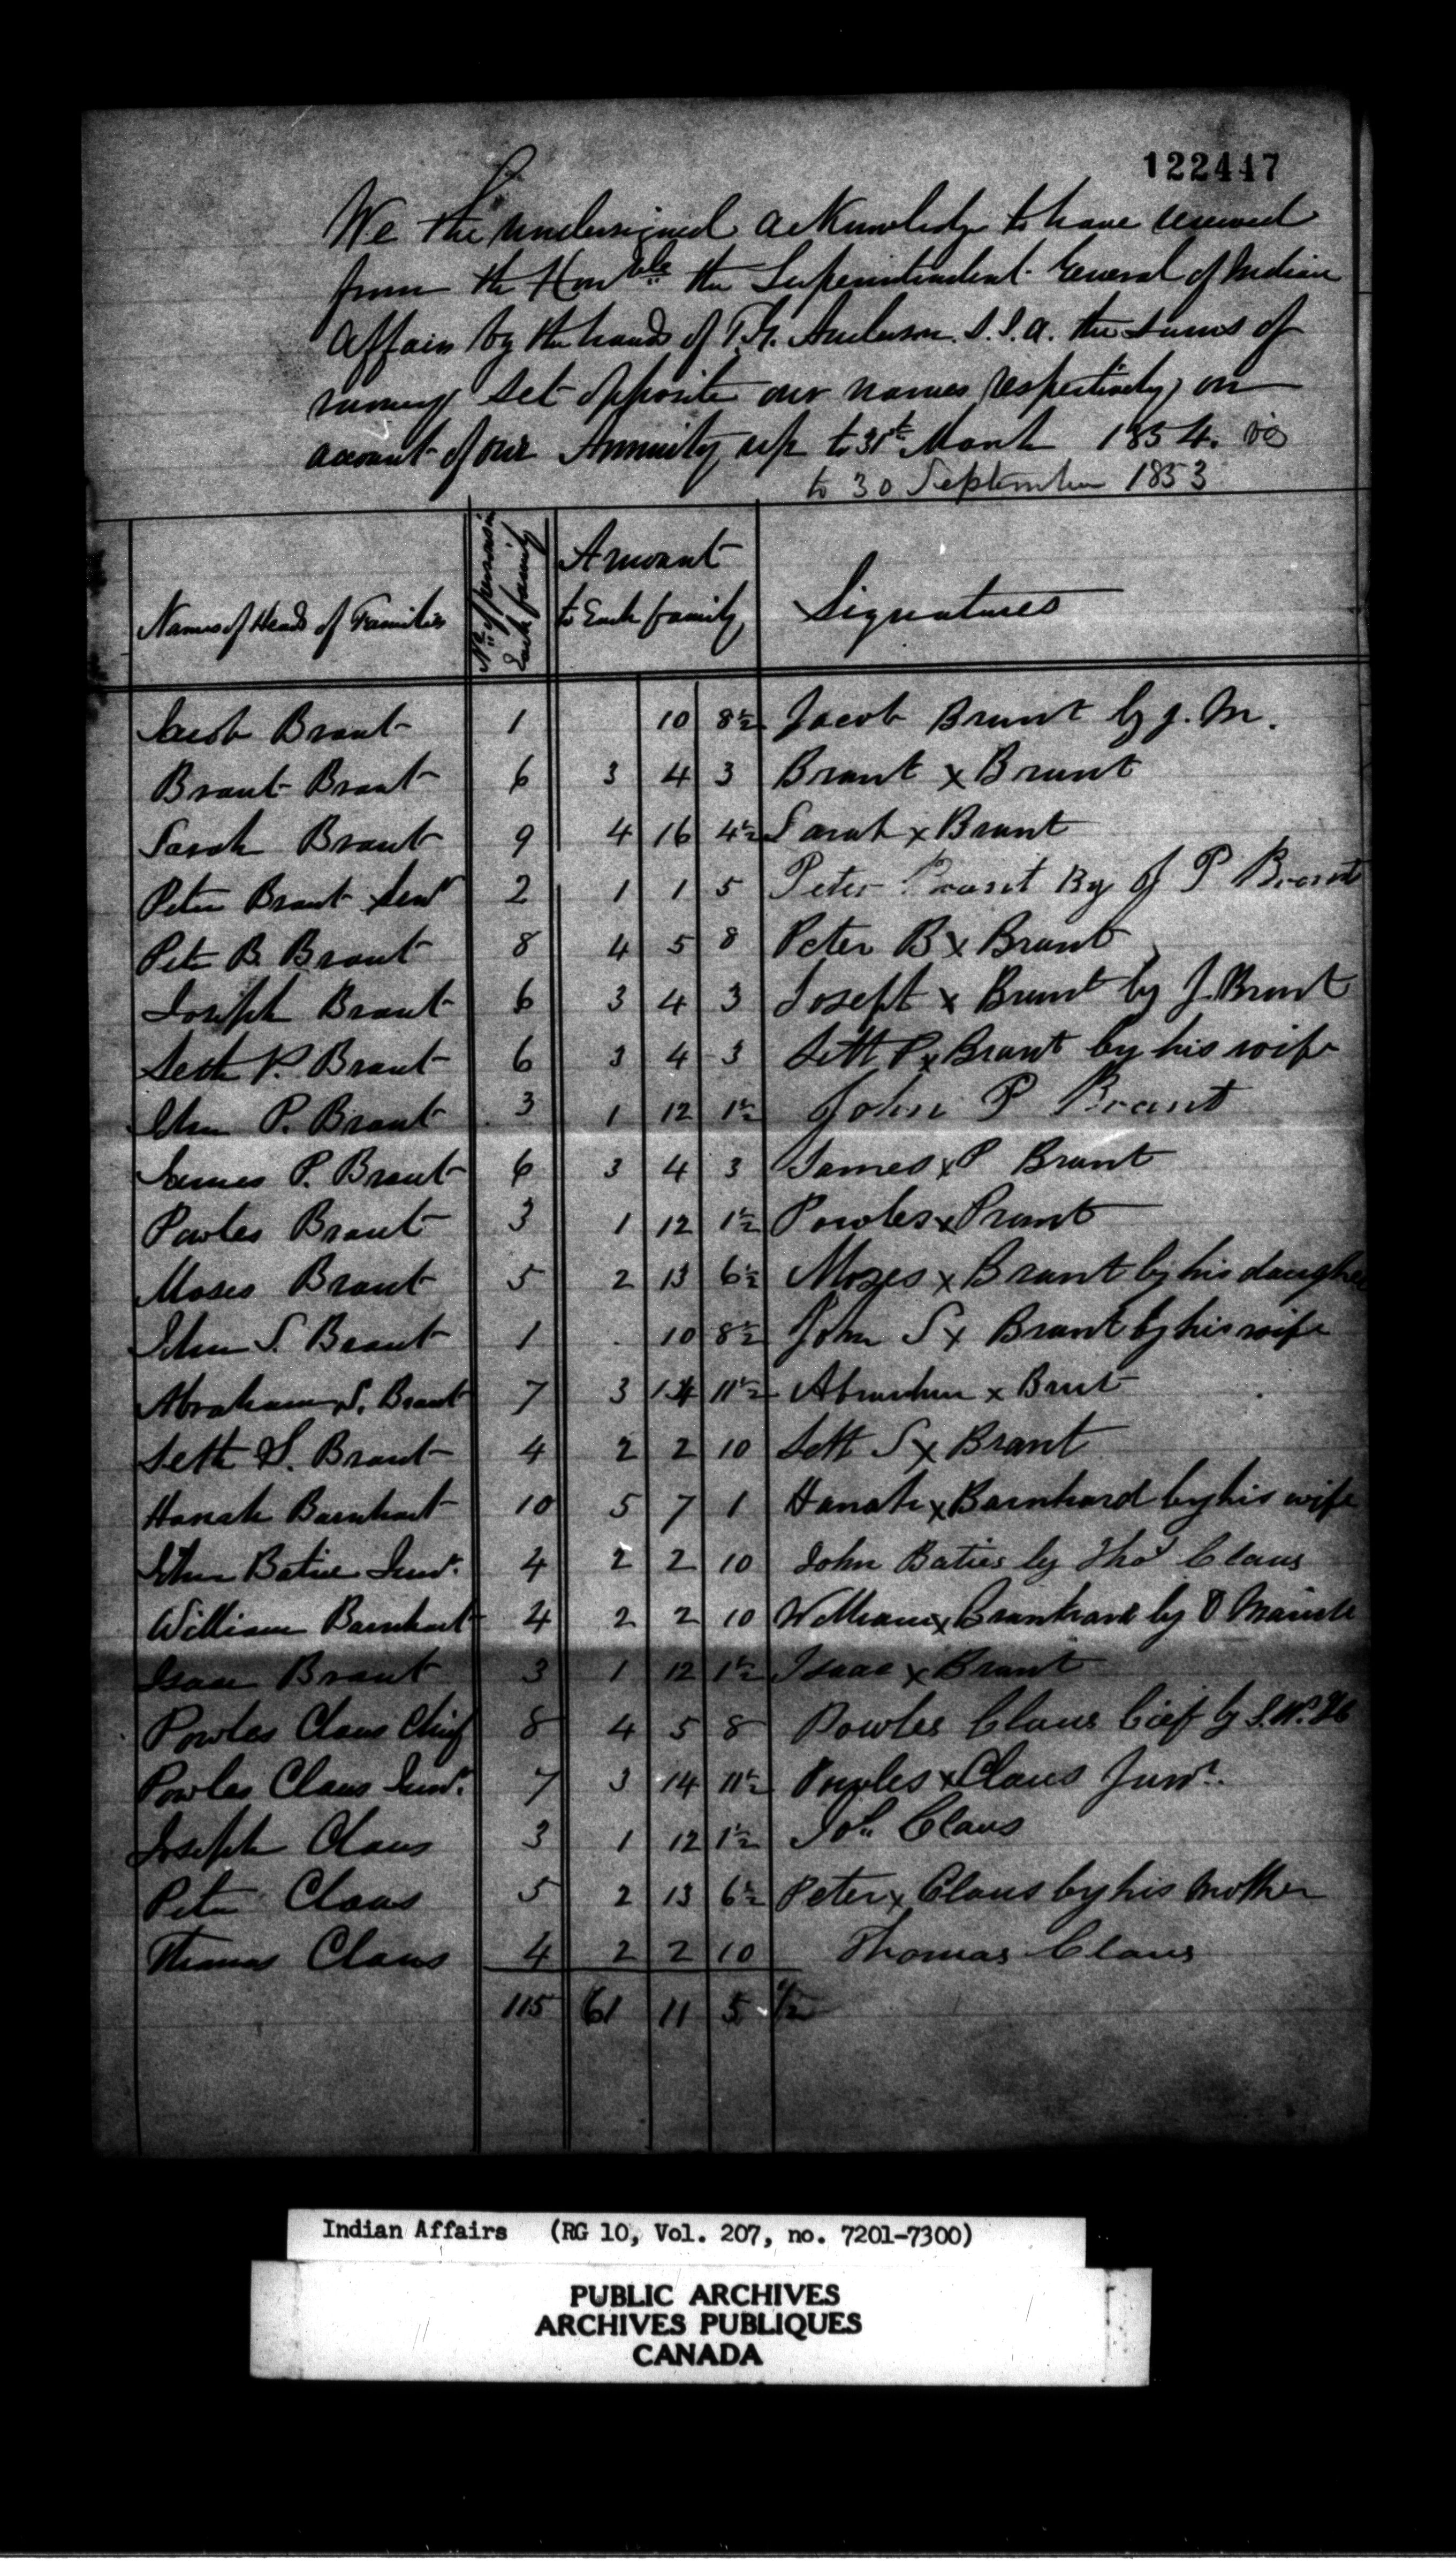 122447
We the undersigned acknowledge to have received
from the Honble the Superintendent General of Indian
Affairs by the hands of T.G. Anderson. S.I.A. the sums of
money set opposite our names respectively, on
account of our Annuity up to 31st March 1854. viz
to 30 September 1853
Names of Heads of Families No of persons in Each family Amount to Each family Signatures
Jacob Brant 1 10 8½ Jacob Brant by J. M.
Brant Brant 6 3 4 3 Brant x Brant
Sarah Brant 9 4 16 4½ Sarah x Brant
Peter Brant Senr 2 1 1 5 Peter Brant By J P Brant
Peter B. Brant 8 4 5 8 Peter B x Brant
Joseph Brant 6 3 4 3 Joseph x Brant by J. Brant
Seth P. Brant 6 3 4 3 Seth P x Brant by his wife
John P. Brant 3 1 12 1½ John P Brant
James P. Brant 6 3 4 3 James x P Brant
Powles Brant 3 1 12 1½ Powles x Brant
Moses Brant 5 2 13 6½ Moses x Brant by his daughter
John S. Brant 1 10 8½ John S x Brant by his wife
Abraham S. Brant 7 3 14 11½ Abraham x Brant
Seth S. Brant 4 2 2 10 Seth S x Brant
Hanah Barnhart 10 5 7 1 Hanah x Barnhard by his wife
John Batise Junr. 4 2 2 10 John Baties by Thos Claus
William Barnhart 4 2 2 10 William x Branhard by
Isaac Brant 3 1 12 1½ Isaac x Brant
Powles Claus Chief 8 4 5 8 Powles Claus Cief by
Powles Claus Junr. 7 3 14 11½ Powles x Claus Junr.
Joseph Claus 3 1 12 1½ Jos Claus
Peter Claus 5 2 13 6½ Peter x Claus by his Mother
Thomas Claus 4 2 2 10 Thomas Claus
115 61 11 5 ½
Indian Affairs (RG 10, Vol. 207, no. 7201-7300)
PUBLIC ARCHIVES
ARCHIVES PUBLIQUES
CANADA